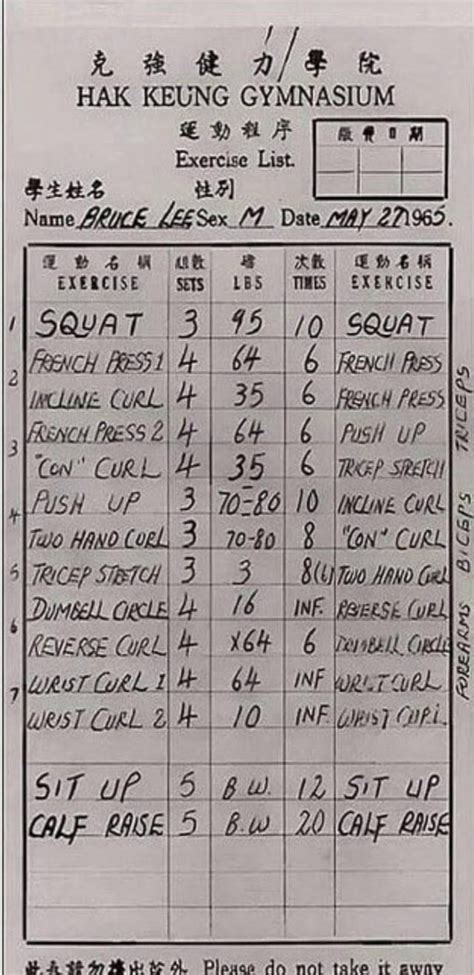 克強健力學院
HAK KEUNG GYMNASIUM
運動程序
Exercise List.
學生姓名 性別
Name BRUCE LEE Sex M Date MAY 27 1965.
運動名稱 組數 磅 次數 運動名稱
EXERCISE SETS LBS TIMES EXERCISE
1 SQUAT 3 95 10 SQUAT
2 FRENCH PRESS 1 4 64 6 FRENCH PRESS
INCLINE CURL 4 35 6 FRENCH PRESS
3 FRENCH PRESS 2 4 64 6 PUSH UP
"CON" CURL 4 35 6 TRICEP STRETCH
4 PUSH UP 3 70-80 10 INCLINE CURL
TWO HAND CURL 3 70-80 8 "CON" CURL
5 TRICEP STRETCH 3 3 8(6) TWO HAND CURL
DUMBELL CIRCLE 4 16 INF. REVERSE CURL
6 REVERSE CURL 4 X64 6 DUMBELL CIRCLE
7 WRIST CURL 1 4 64 INF WRIST CURL
WRIST CURL 2 4 10 INF. WRIST CURL
SIT UP 5 B.W. 12 SIT UP
CALF RAISE 5 B.W 20 CALF RAISE
FOREARMS BICEPS TRICEPS
Please do not take it away